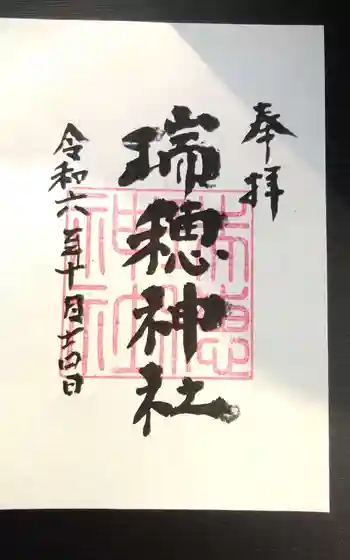 奉拝
瑞穂神社
令和六年十月十四日
瑞穂
神社